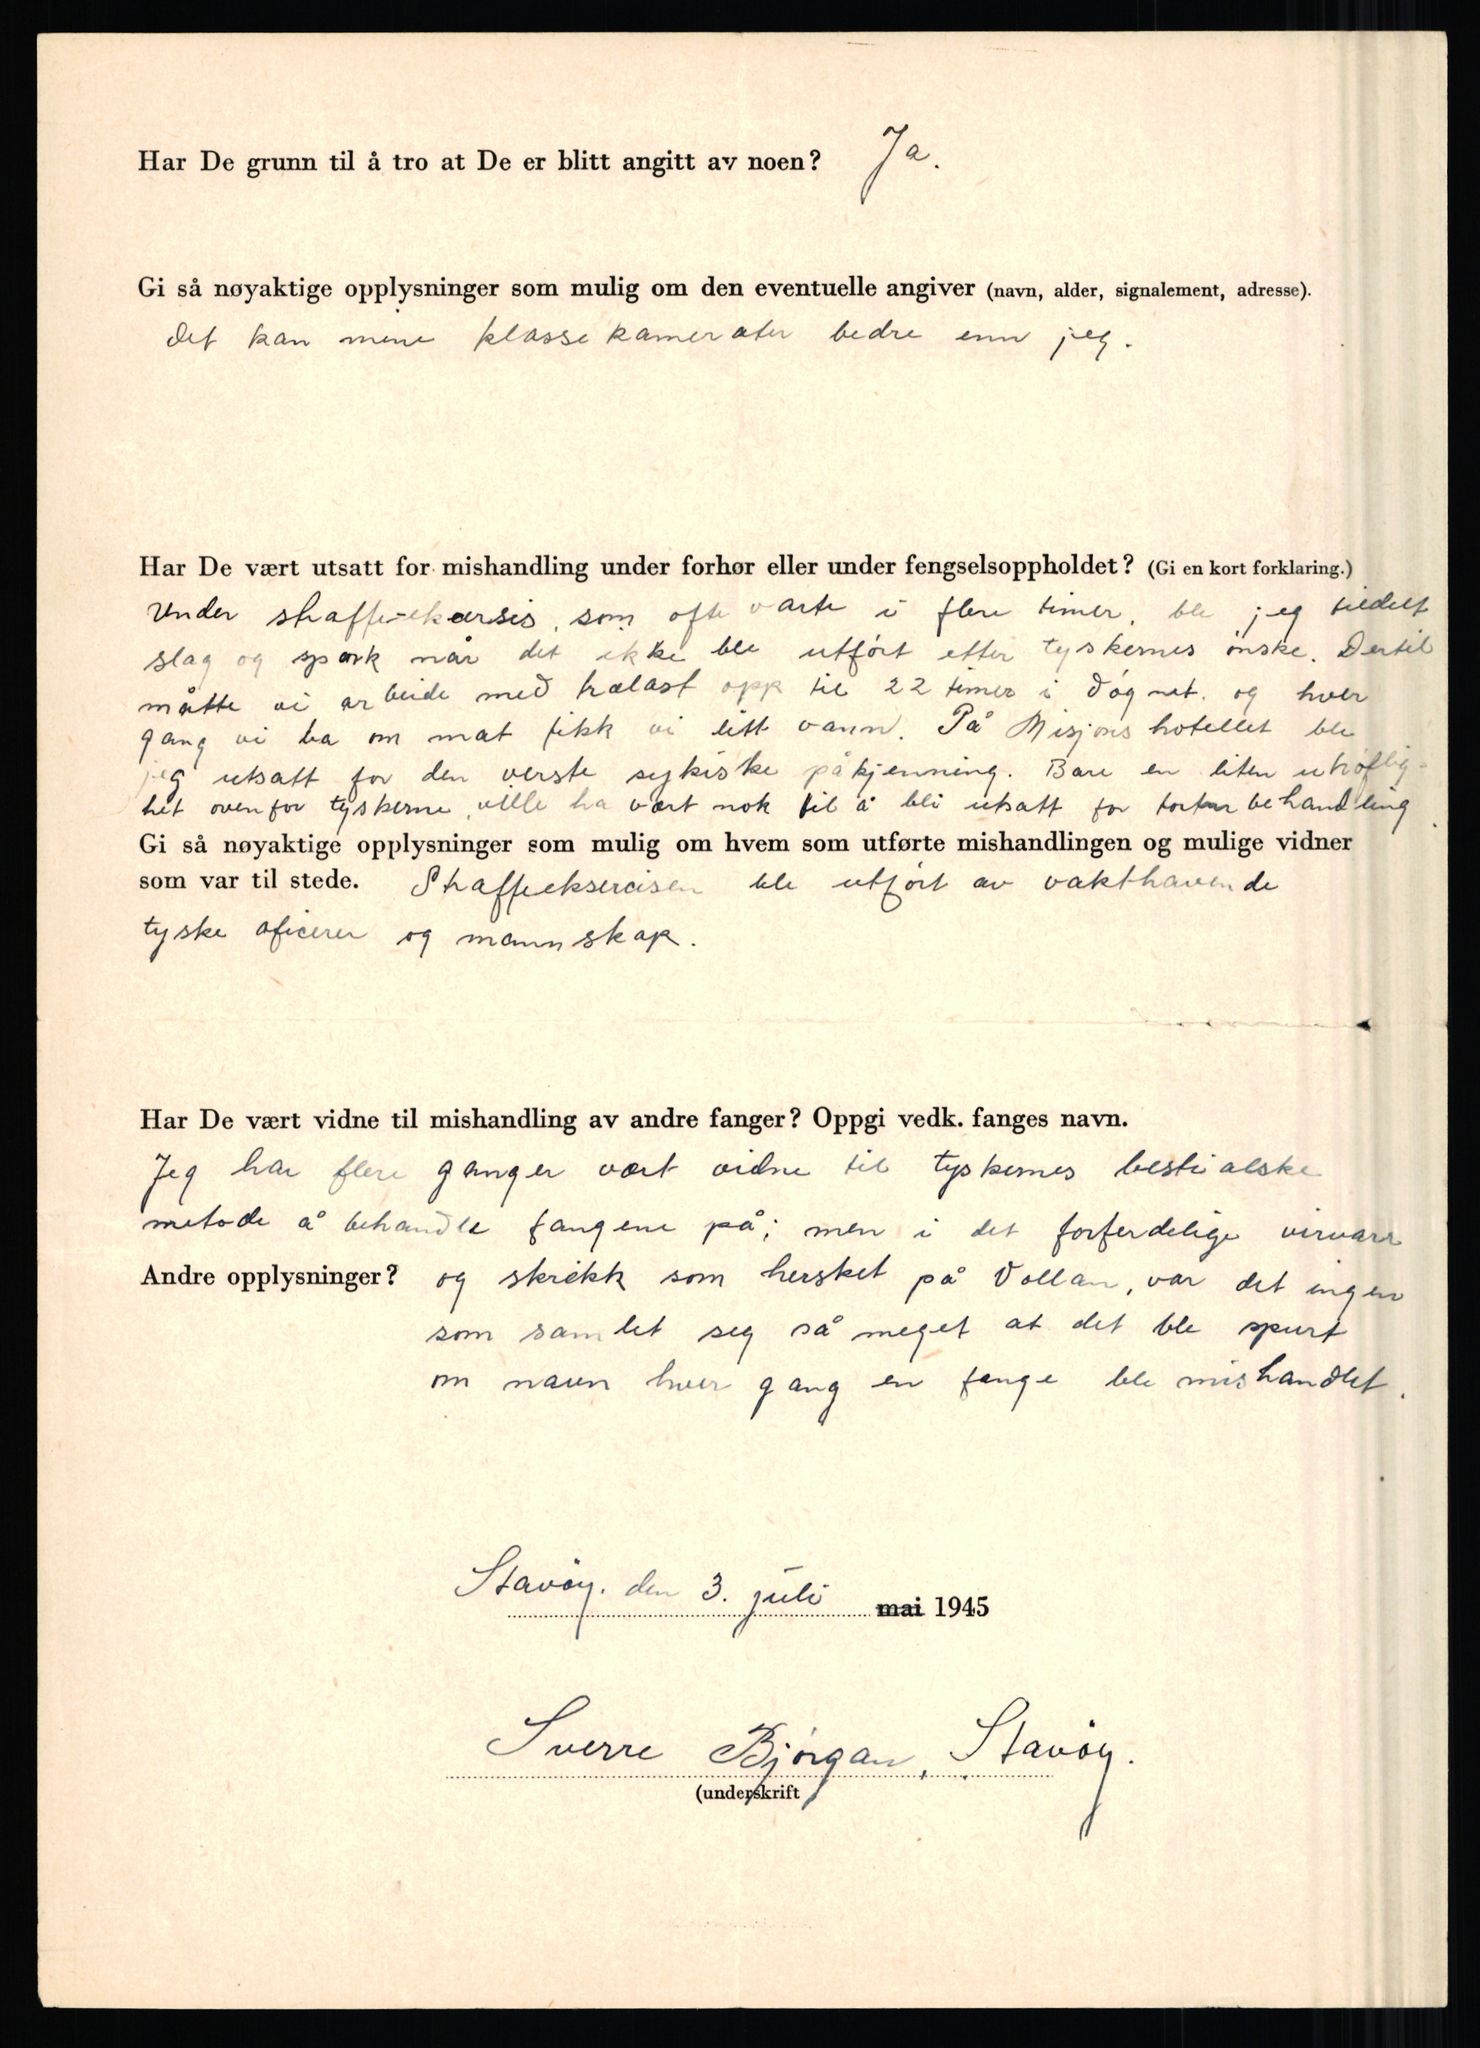 Har De grunn til å tro at De er blitt angitt av noen? Ja.
Gi så nøyaktige opplysninger som mulig om den eventuelle angiver (navn, alder, signalement, adresse).
Det kan mine klassekamerater bedre enn jeg.
Har De vært utsatt for mishandling under forhør eller under fengselsoppholdet? (Gi en kort forklaring.)
Under straffe-eksersis, som ofte varte i flere timer, ble jeg tildelt
slag og spark når det ikke ble utført etter tyskernes ønske. Dertil
måtte vi arbeide med trelast opp til 22 timer i døgnet. og hver
gang vi ba om mat fikk vi litt vann. På Misjonshotellet ble
jeg utsatt for den verste sykiske påkjenning. Bare en liten uhøflig-
het ovenfor tyskerne, ville ha vært nok til å bli utsatt for torturbehandling
Gi så nøyaktige opplysninger som mulig om hvem som utførte mishandlingen og mulige vidner
som var til stede. Straffeeksercisen ble utført av vakthavende
tyske oficerer og mannskap.
Har De vært vidne til mishandling av andre fanger? Oppgi vedk. fanges navn.
Jeg har flere ganger vært vidne til tyskernes bestialske
metode å behandle fangene på; men i det forferdelige virvarr
Andre opplysninger? og skrekk som hersket på Vollan, var det ingen
som samlet seg så meget at det ble spurt
om navn hver gang en fange ble mishandlet.
Stavøy. den 3. juli mai 1945
Sverre Bjørgan, Stavøy.
(underskrift